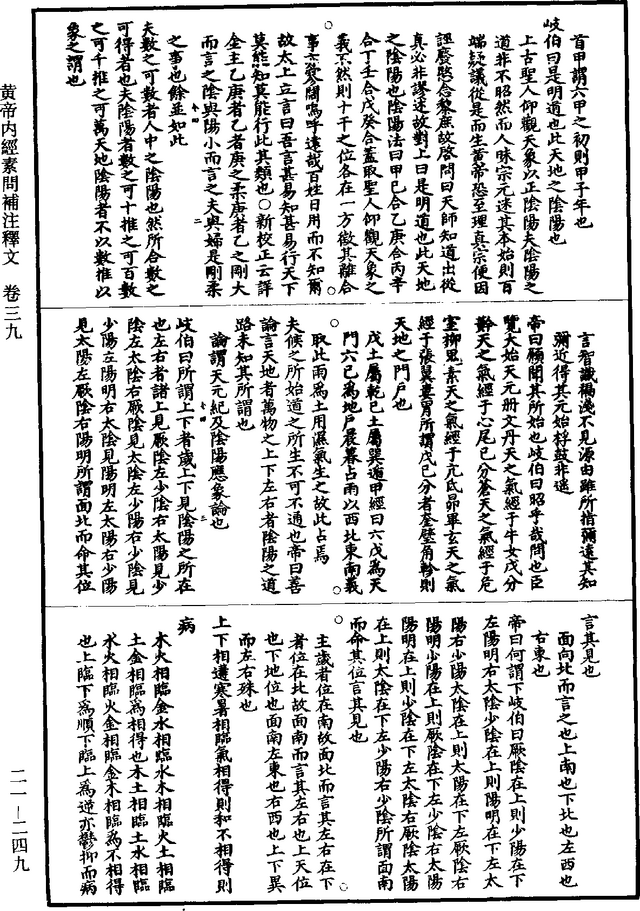 首甲謂六甲之初則甲子年也
岐伯曰是明道也此天地之陰陽也
上古聖人仰觀天象以正陰陽夫陰陽之
道非不昭然而人昧宗元迷其本始則百
端疑議從是而生黃帝恐至理真宗便因
誣廢愍念黎庶故啓問曰天師知道出從
真必非謬述故對上曰是明道也此天地
之陰陽也陰陽法曰甲己合乙庚合丙辛
合丁壬合戊癸合蓋取聖人仰觀天象之
義不然則十干之位各在一方徵其離合
事亦寥闊嗚呼遠哉百姓日用而不知爾
故太上立言曰吾言甚易知甚易行天下
莫能知莫能行此其類也○新校正云詳
金主乙庚者乙者庚之柔庚者乙之剛大
而言之陰與陽小而言之夫與婦是剛柔
之事也餘並如此
夫數之可數者人中之陰陽也然所合數之
可得者也夫陰陽者數之可十推之可百數
之可千推之可萬天地陰陽者不以數推以
象之謂也
言智識褊淺不見源由雖所指彌遠其知
彌近得其元始桴鼓非遥
帝曰願聞其所始也岐伯曰昭乎哉問也臣
覽大始天元册文丹天之氣經于牛女戊分
黅天之氣經于心尾己分蒼天之氣經于危
室柳鬼素天之氣經于亢氐昴畢玄天之氣
經于張翼婁胃所謂戊己分者奎壁角軫則
天地之門戶也
戊土屬乾己土屬巽遁甲經曰六戊為天
門六己為地戶晨暮占雨以西北東南義
取此雨為土用濕氣生之故此占焉
夫候之所始道之所生不可不通也帝曰善
論言天地者萬物之上下左右者陰陽之道
路未知其所謂也
論謂天元紀及陰陽應象論也
岐伯曰所謂上下者歲上下見陰陽之所在
也左右者諸上見厥陰左少陰右太陽見少
陰左太陰右厥陰見太陰左少陽右少陰見
少陽左陽明右太陰見陽明左太陽右少陽
見太陽左厥陰右陽明所謂面北而命其位
言其見也
面向北而言之也上南也下北也左西也
右東也
帝曰何謂下岐伯曰厥陰在上則少陽在下
左陽明右太陰少陰在上則陽明在下左太
陽右少陽太陰在上則太陽在下左厥陰右
陽明少陽在上則厥陰在下左少陰右太陽
陽明在上則少陰在下左太陰右厥陰太陽
在上則太陰在下左少陽右少陰所謂面南
而命其位言其見也
主歲者位在南故面北而言其左右在下
者位在北故面南而言其左右也上天位
也下地位也面南左東也右西也上下異
而左右殊也
上下相遘寒暑相臨氣相得則和不相得則
病
木火相臨金水相臨水木相臨火土相臨
土金相臨為相得也木土相臨土水相臨
水火相臨火金相臨金木相臨為不相得
也上臨下為順下臨上為逆亦鬱抑而病
黃帝内經素問補注釋文 卷三九
二一—二四九